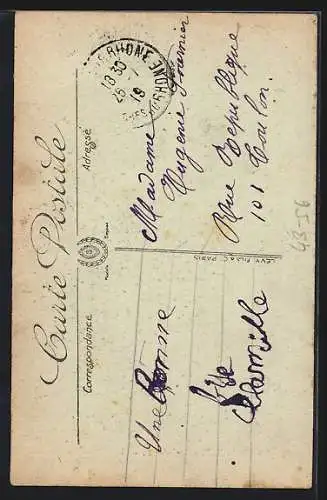 Carte Postale
Correspondance
Adresse
RHONE
18 30
25 - 7
19
RHONE
LEVY FILS & Cie PARIS
Une Bonne
Fête
Camille
Madame
Eugenie Fournier
Rue République
101 Toulon.
48-56